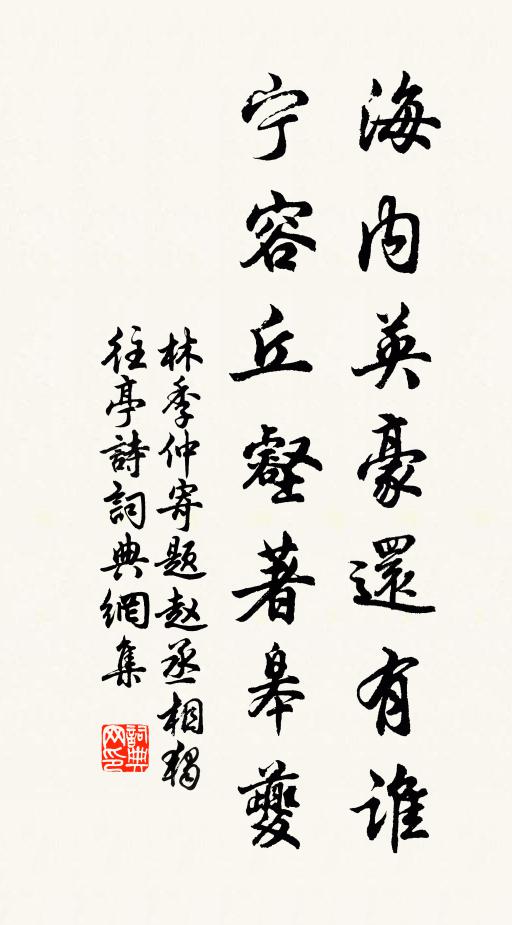 海内英豪還有誰
宁容丘壑著皋夔
林季仲寄题赵丞相独
往亭詩詞典網集
詞典网印